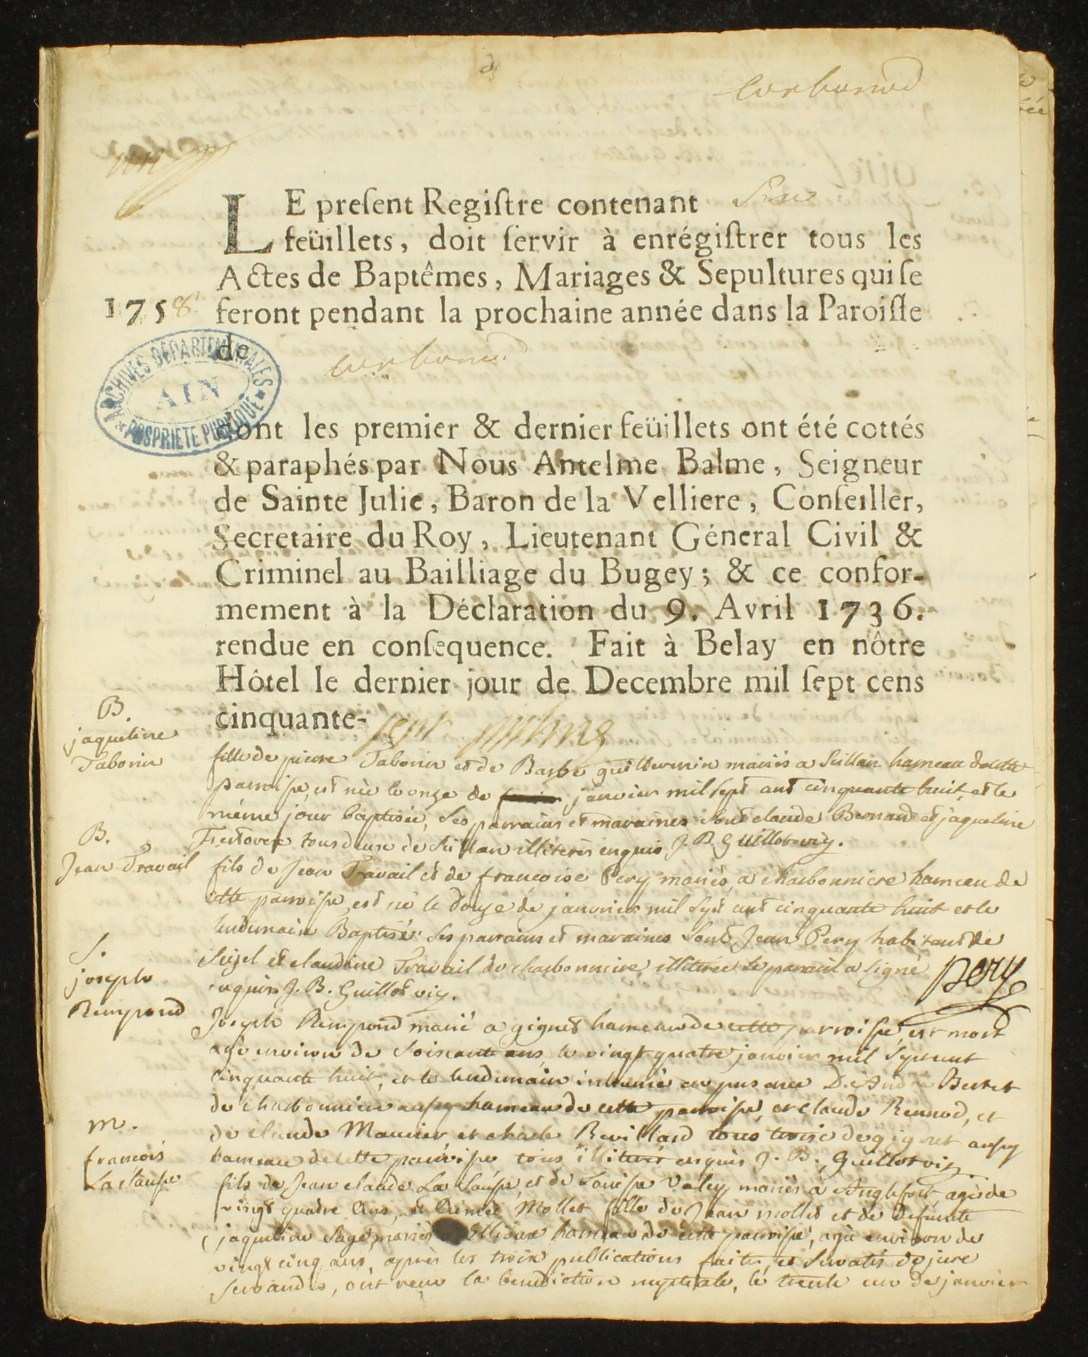 Corbonod
LE preſent Regiſtre contenant Seize
feüillets, doit ſervir à enrégiſtrer tous les
Actes de Baptêmes, Mariages & Sepultures qui ſe
1758
feront pendant la prochaine année dans la Paroiſſe
de Corbonod
ARCHIVES DÉPARTEMENTALES
AIN
PROPRIETE PUBLIQUE
dont les premier & dernier feüillets ont été cottés
& paraphés par Nous Antelme Balme, Seigneur
de Sainte Julie, Baron de la Velliere, Conſeiller,
Secretaire du Roy, Lieutenant Géneral Civil &
Criminel au Bailliage du Bugey; & ce confor-
mement à la Déclaration du 9. Avril 1736.
rendue en conſequence. Fait à Belay en nôtre
Hôtel le dernier jour de Decembre mil ſept cens
cinquante-sept
B.
jaqueline
Taborin
fille de pierre Taborin et de Barbe guillermin mariés a Sillan hameau de cette
paroisse, est née le onze de janvier mil sept cent cinquante huit, et le
même jour baptisée, Ses parrains et maraines sont claude Bernard et jaqueline
tous deux de Sillan illiterés enquis J. B. Guillot vic.
B.
Jean Travail
fils de Jean Travail et de francoise Pery mariés a charbonniere hameau de
cette paroisse, est né le douze de janvier mil sept cent cinquante huit et le
lendemain Baptisé. Ses parrains et maraines sont Jean Pery habitant de
Seisel et claudine Travail de charbonniere, illiterée le parain a signé
enquis J. B. Guillot vic. pery
S.
joseph
Rempond
Joseph Rempond marié a gignez hameau de cette parroisse, est mort
agé environ de soisante ans, le vingt quatre janvier mil sept cent
cinquante huit, et le lendemain inhumé en presence D'André Bertet
de charbonniere aussy hameau de cette paroisse, et claude Renod, et
de claude Mounier et charle Revillard tous trois de gignet aussy
hameau de cette parroisse tous illiterés enquis J. B. Guillot vic.
m.
francois
La Saupe
fils de Jean claude La Saupe, et de Louise Valey mariés a Anglefort agé de
vingt quatre ans, & Aimée Mollet fille de Jean mollet et de defunte
jaqueline mariés hameau de cette parroisse, agée environ de
vingt cinq ans, après les trois publications faites, et servatis de jure
servandis, ont reçu la benediction nuptiale, le trente un de janvier